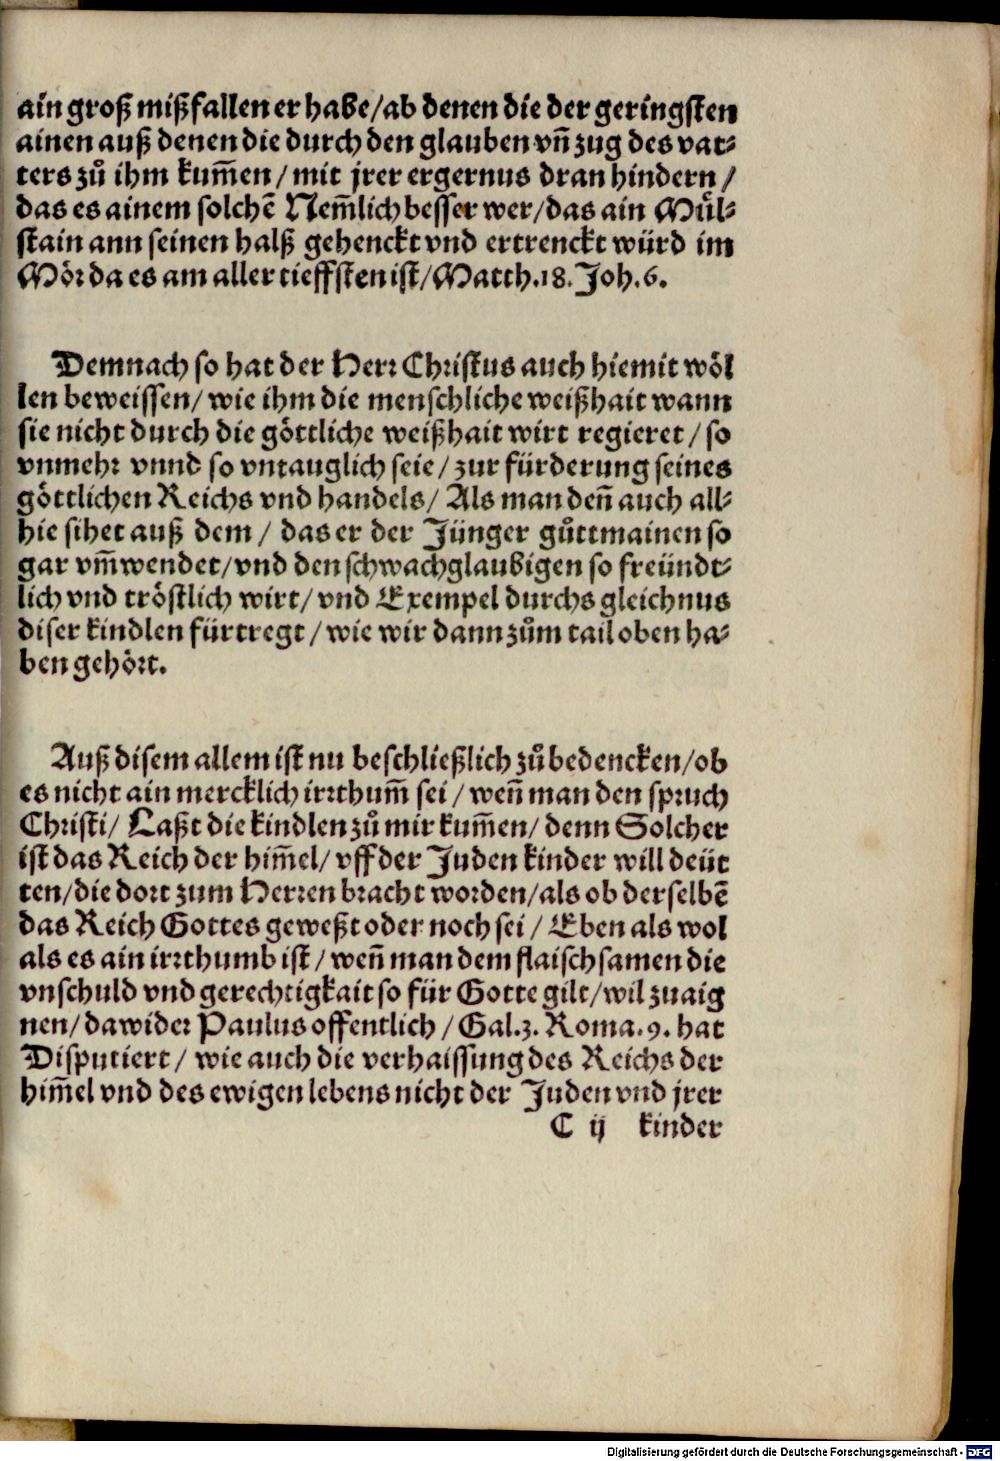 ain groß mißfallen er habe/ab denen die der geringsten
ainen auß denen die durch den glauben vñ zug des vat-
ters zů ihm kum̃en/ mit jrer ergernus dran hindern/
das es ainem solchẽ Nem̃lich besser wer/das ain Mül-
stain ann seinen halß gehenckt vnd ertrenckt würd im
Mör da es am aller tieffsten ist/Matth.18. Joh.6.
Demnach so hat der Herr Christus auch hiemit wöl
len beweissen/ wie ihm die menschliche weißhait wann
sie nicht durch die göttliche weißhait wirt regieret/ so
vnmehr vnnd so vntauglich seie/ zur fürderung seines
göttlichen Reichs vnd handels/ Als man deñ auch all-
hie sihet auß dem/ das er der Jünger gůttmainen so
gar vm̃wendet/vnd den schwachglaubigen so freündt-
lich vnd tröstlich wirt/ vnd Exempel durchs gleichnus
diser kindlen fürtregt/ wie wir dann zům tail oben ha-
ben gehört.
Auß disem allem ist nu beschließlich zůbedencken/ob
es nicht ain mercklich irrthum̃ sei/ weñ man den spruch
Christi/ Laßt die kindlen zů mir kum̃en/ denn Solcher
ist das Reich der him̃el/ vff der Juden kinder will deüt
ten/die dort zum Herren bracht worden/als ob derselbẽ
das Reich Gottes geweßt oder noch sei/ Eben als wol
als es ain irrthumb ist/ weñ man dem flaischsamen die
vnschuld vnd gerechtigkait so für Gotte gilt/wil zuaig
nen/ dawider Paulus offentlich/ Gal.3. Roma.9. hat
Disputiert/ wie auch die verhaissung des Reichs der
him̃el vnd des ewigen lebens nicht der Juden vnd jrer
C ij kinder
Digitalisierung gefördert durch die Deutsche Forschungsgemeinschaft - DFG